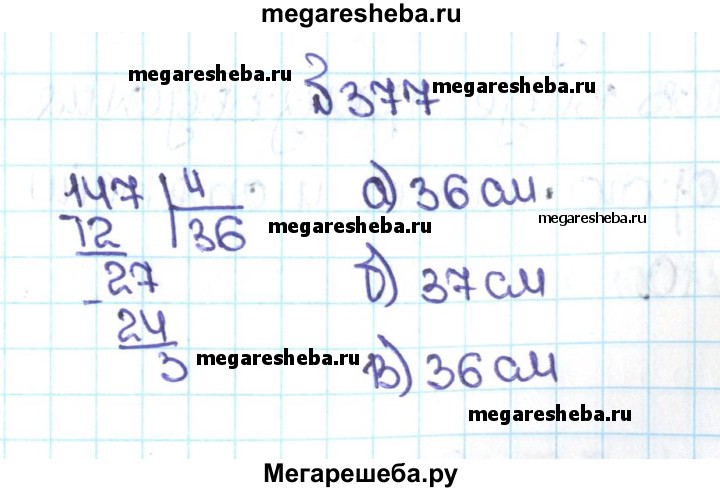 megaresheba.ru
megaresheba.ru
№377
megaresheba.ru
147 4
12 36
- 27
24
3
megaresheba.ru
а) 36 см.
megaresheba.ru
б) 37 см
megaresheba.ru
в) 36 см
megaresheba.ru
Мегарешеба.ру